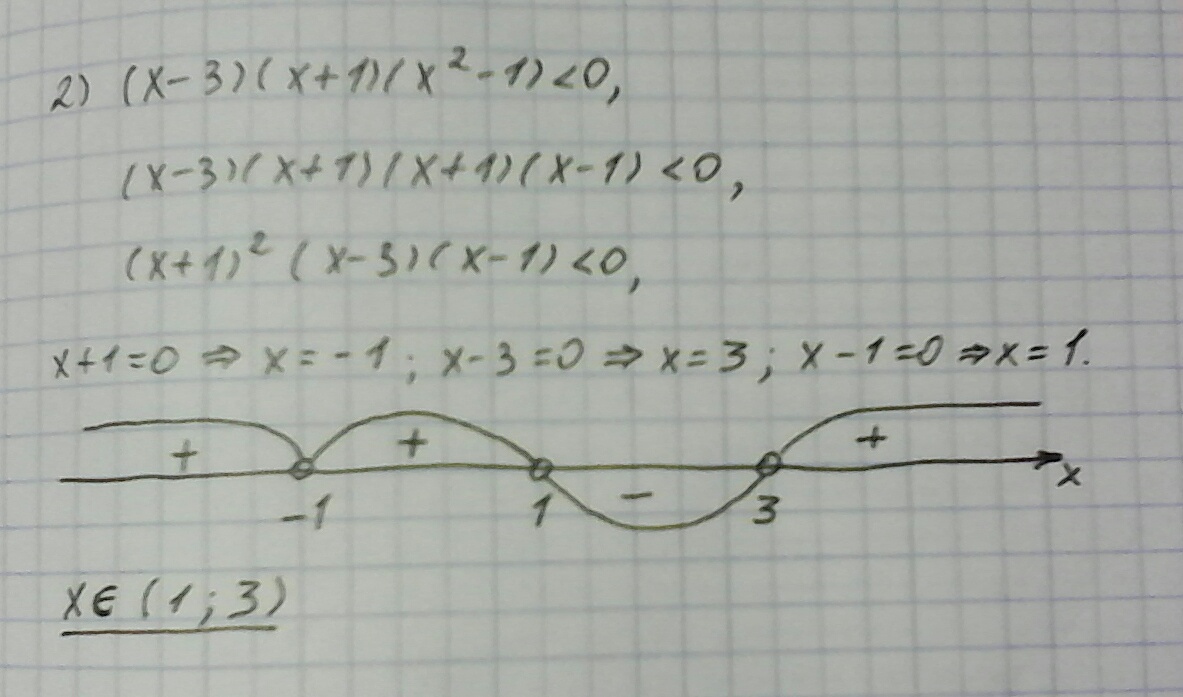 2) (x-3)(x+1)(x²-1)<0,
(x-3)(x+1)(x+1)(x-1)<0,
(x+1)²(x-3)(x-1)<0,
x+1=0 ⇒ x=-1; x-3=0 ⇒ x=3; x-1=0 ⇒ x=1.
+ + - +
-1 1 3 x
x∈(1;3)